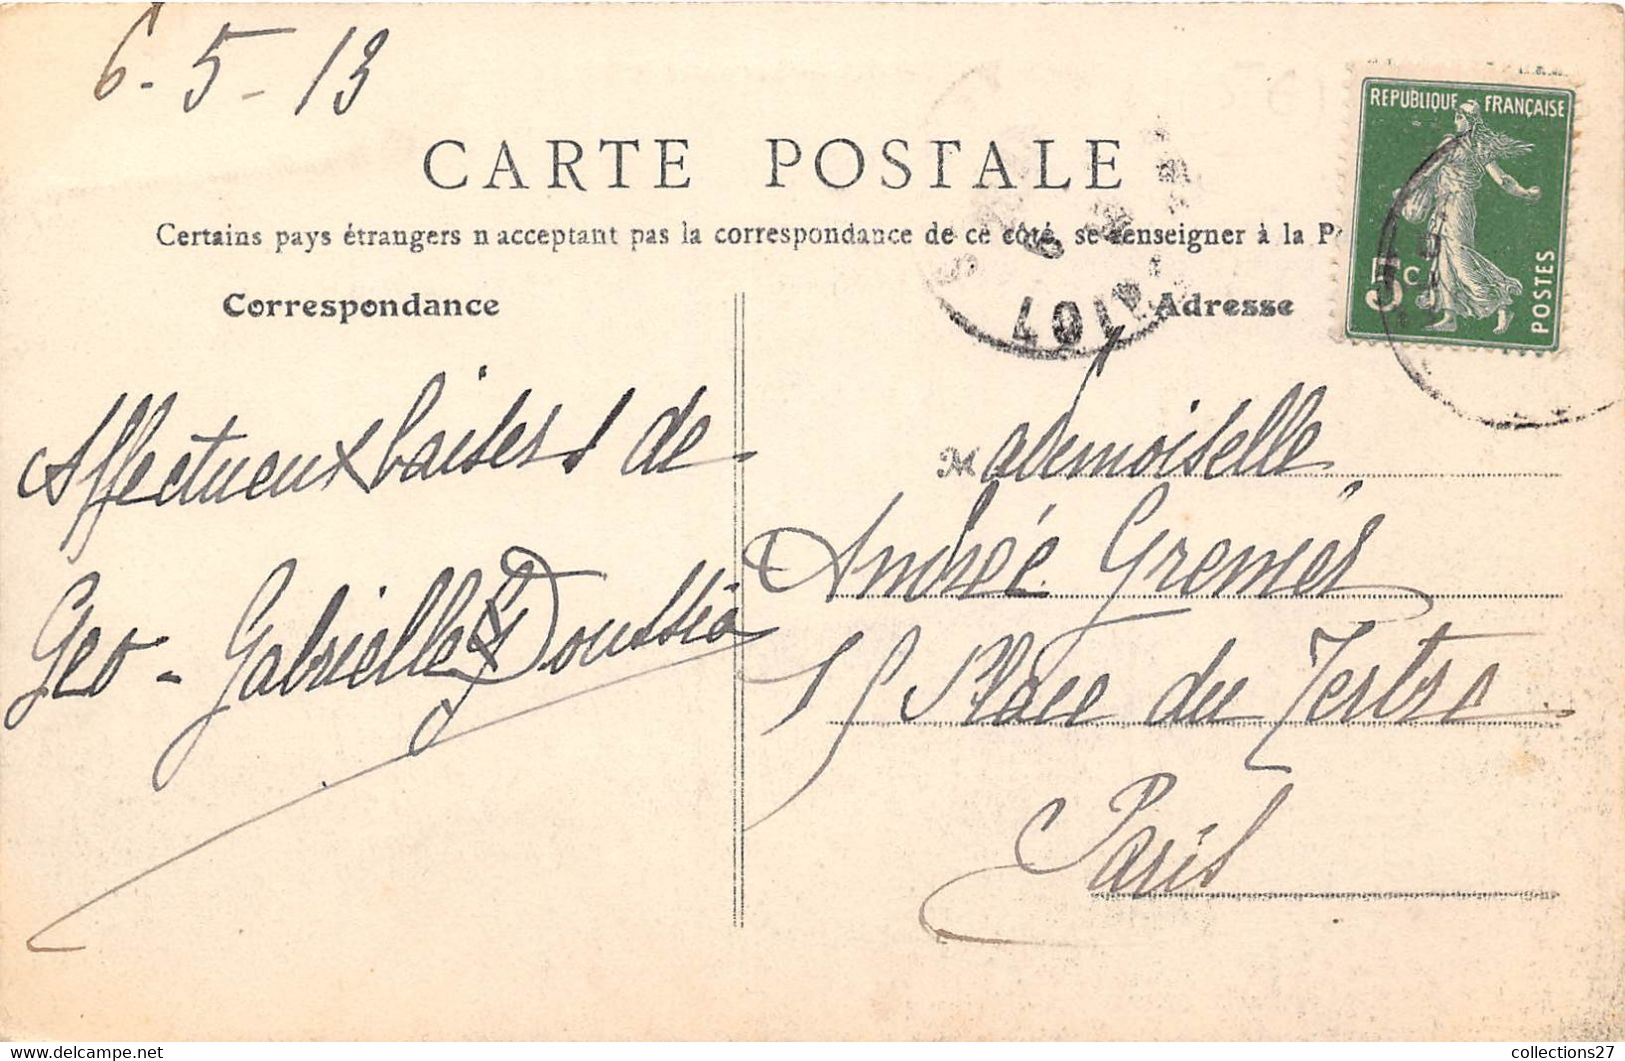 6-5-13
CARTE POSTALE
Certains pays étrangers n'acceptant pas la correspondance de ce côté, se renseigner à la P
Correspondance
Adresse
REPUBLIQUE FRANÇAISE
5c
POSTES
Affectueux baisers de
Geo - Gabrielle
Mademoiselle
Andrée Grenier
Place du Tertre
Paris
collections27